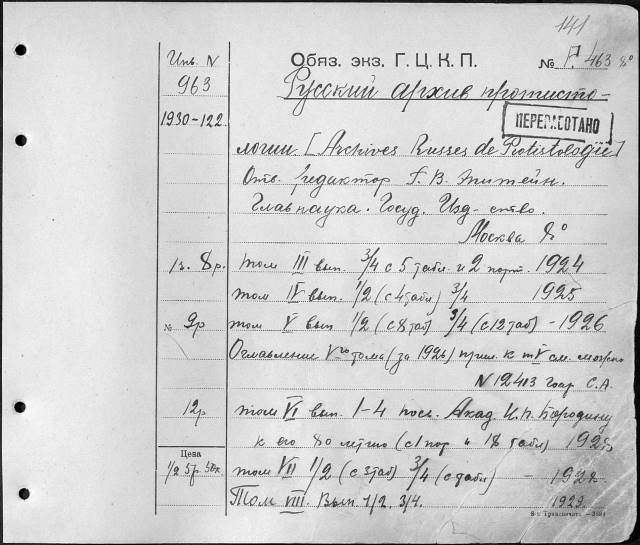 141
Инв. N Обяз. экз. Г. Ц. К. П. № 463 8°
963 Русский архив протисто-
ПЕРЕРАБОТАНО
1930-122. логии. [Archives Russes de Protistologie]
Отв. редактор Г. В. Эпштейн.
Главнаука. Госуд. Изд-ство.
Москва 8°
8р. том III вып. 3/4 с 5 табл. и 2 порт. 1924
том IV вып. 1/2 (с 4 табл) 3/4 1925
№ 9р том V вып 1/2 (с 8 таб) 3/4 (с 12 таб) - 1926
Оглавление V го тома (за 1926) прил. к т V см.
N 12413 С. А.
12р том VI вып. 1-4 посв. Акад. И. П. Бородину
к его 80 летию (с 1 пор и 18 табл) 1927
Цена
1/2 5р. 50к. том VII 1/2 (с 3 табл) 3/4 (с табл) - 1928
Том VIII. Вып. 1/2. 3/4. 1929.